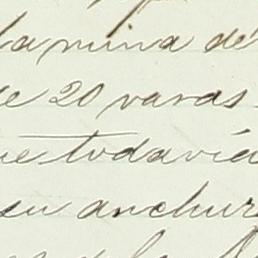 la mina de
de 20 varas
ue todavía
su anchur